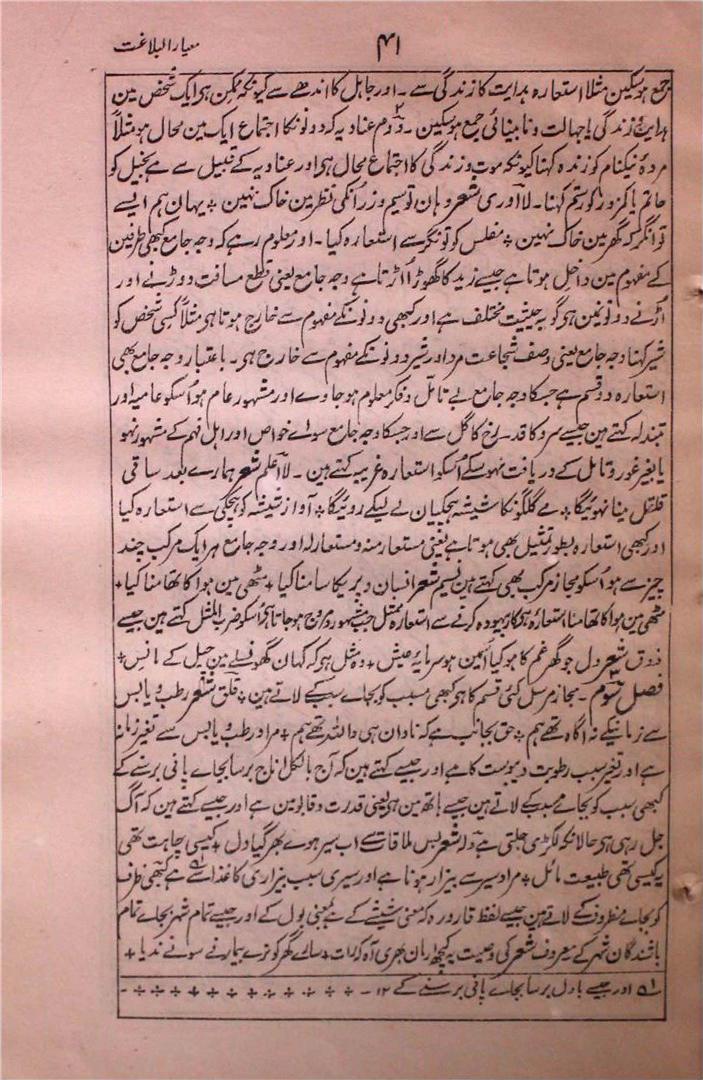 ۴۱
معیار البلاغت
جمع ہوسکین مثلا استعارہ ہدایت کا زندگی سے ۔ اور جاہل کا اندھے سے کیونکہ ممکن ہی ایک شخص مین
ہدایت زندگی یا جہالت و نابینائی جمع ہوسکین ۔ دوم عنادیہ کہ دونونکا اجتماع ایک مین محال ہو مثلاً
مردۂ نیکنام کو زندہ کہنا کیونکہ موت و زندگی کا اجتماع محال ہی اور عنادیہ کے قبیل سے ہے بخیل کو
حاتم یا کمزور کو رستم کہنا ۔ لا ادری شعر وہان تو سیم و زر انکی نظر مین خاک نہین ٭ یہان ہم ایسے
توانگر کہ گھر مین خاک نہین ٭ مفلس کو تونگر سے استعارہ کیا ۔ اور معلوم رہے کہ وجہ جامع کبھی طرفین
کے مفہوم مین داخل ہوتا ہے جیسے زید کا گھوڑا اڑتا ہے وجہ جامع یعنی قطع مسافت دوڑنے اور
اڑنے دونونمین ہی گو بہ حیثیت مختلف ہے اور کبھی دونونکے مفہوم سے خارج ہوتا ہی مثلاً کسی شخص کو
شیر کہنا وجہ جامع یعنی وصف شجاعت مرد اور شیر دونونکے مفہوم سے خارج ہی ۔ باعتبار وجہ جامع بھی
استعارہ دو قسم ہے جسکا وجہ جامع بے تامل و فکر معلوم ہو جاوے اور مشہور عام ہو اسکو عامیہ اور
مبتذلہ کہتے ہین جیسے سرو کا قد ۔ رخ کا گل سے اور جسکا وجہ جامع سواے خواص اور اہل فہم کے مشہور نہو
یا بغیر غور و تامل کے دریافت نہوسکے اسکو استعارہ غریبہ کہتے ہین ۔ لا اعلم شعر ہمارے بعد ساقی
قلقل مینا نہوئیگا ٭ مے گلگونکا شیشہ ہچکیان لے لیکے روئیگا ٭ آواز شیشہ کو ہچکی سے استعارہ کیا
اور کبھی استعارہ بطور تمثیل بھی ہوتا ہے یعنی مستعار منہ و مستعار لہ اور وجہ جامع ہر ایک مرکب چند
چیز سے ہو اسکو مجاز مرکب بھی کہتے ہین نسیم شعر انسان و پریکا سامنا کیا ٭ مٹھی مین ہوا کا تھامنا کیا ٭
مٹھی مین ہوا کا تھامنا استعارہ ہی کار بیہودہ کرنے سے استعارہ ممثل جب مشہور و مروج ہو جاتا ہی اسکو ضرب المثل کہتے ہین جیسے
ذوق شعر دل جو گھر غم کا ہو کیا اسمین ہو سرمایۂ عیش ٭ وہ مثل ہی کہ کہان گھونسلے مین چیل کے مانس ٭
فصل سوم ۔ مجاز مرسل کئی قسم کا ہی کبھی مسبب کو بجاے سبب کے لاتے ہین ٭ قلق شعر رطب و یابس
سے زمانیکے نہ آگاہ تھے ہم ٭ حق بجانب ہے کہ نادان ہی واللہ تھے ہم ٭ مراد رطب و یابس سے تغیر زمانہ
ہے اور تغیر سبب رطوبت و یبوست کا ہے اور جیسے کہتے ہین کہ آج بالکل اناج برسا بجاے پانی برسنے کے
کبھی سبب کو بجاے مسبب کے لاتے ہین جیسے ہاتھ مین ہی یعنی قدرت و قابو مین ہے اور جیسے کہتے ہین کہ آگ
جل رہی ہی حالانکہ لکڑی جلتی ہے ولہ شعر بس ملاقات سے اب سیر ہوے بھر گیا دل ٭ کیسی چاہت تھی
یہ کیسی تھی طبیعت مائل ٭ مراد سیر سے بیزار ہونا ہے اور سیری سبب بیزاری کا غذا سے ہے کبھی ظرف
کو بجاے مظروف کے لاتے ہین جیسے لفظ قارورہ کہ معنی شیشے کے ہے بمعنی بول کے اور جیسے تمام شہر بجاے تمام
باشندگان شہر کے معروف شعر کی وصیت یہ کچھ ارمان بھری آہ کہ رات ٭ سارے گھر کو ترے بیمار نے سونے ندیا ٭
۵۱ اور جیسے بادل برسا بجاے پانی برسنے کے ۱۲